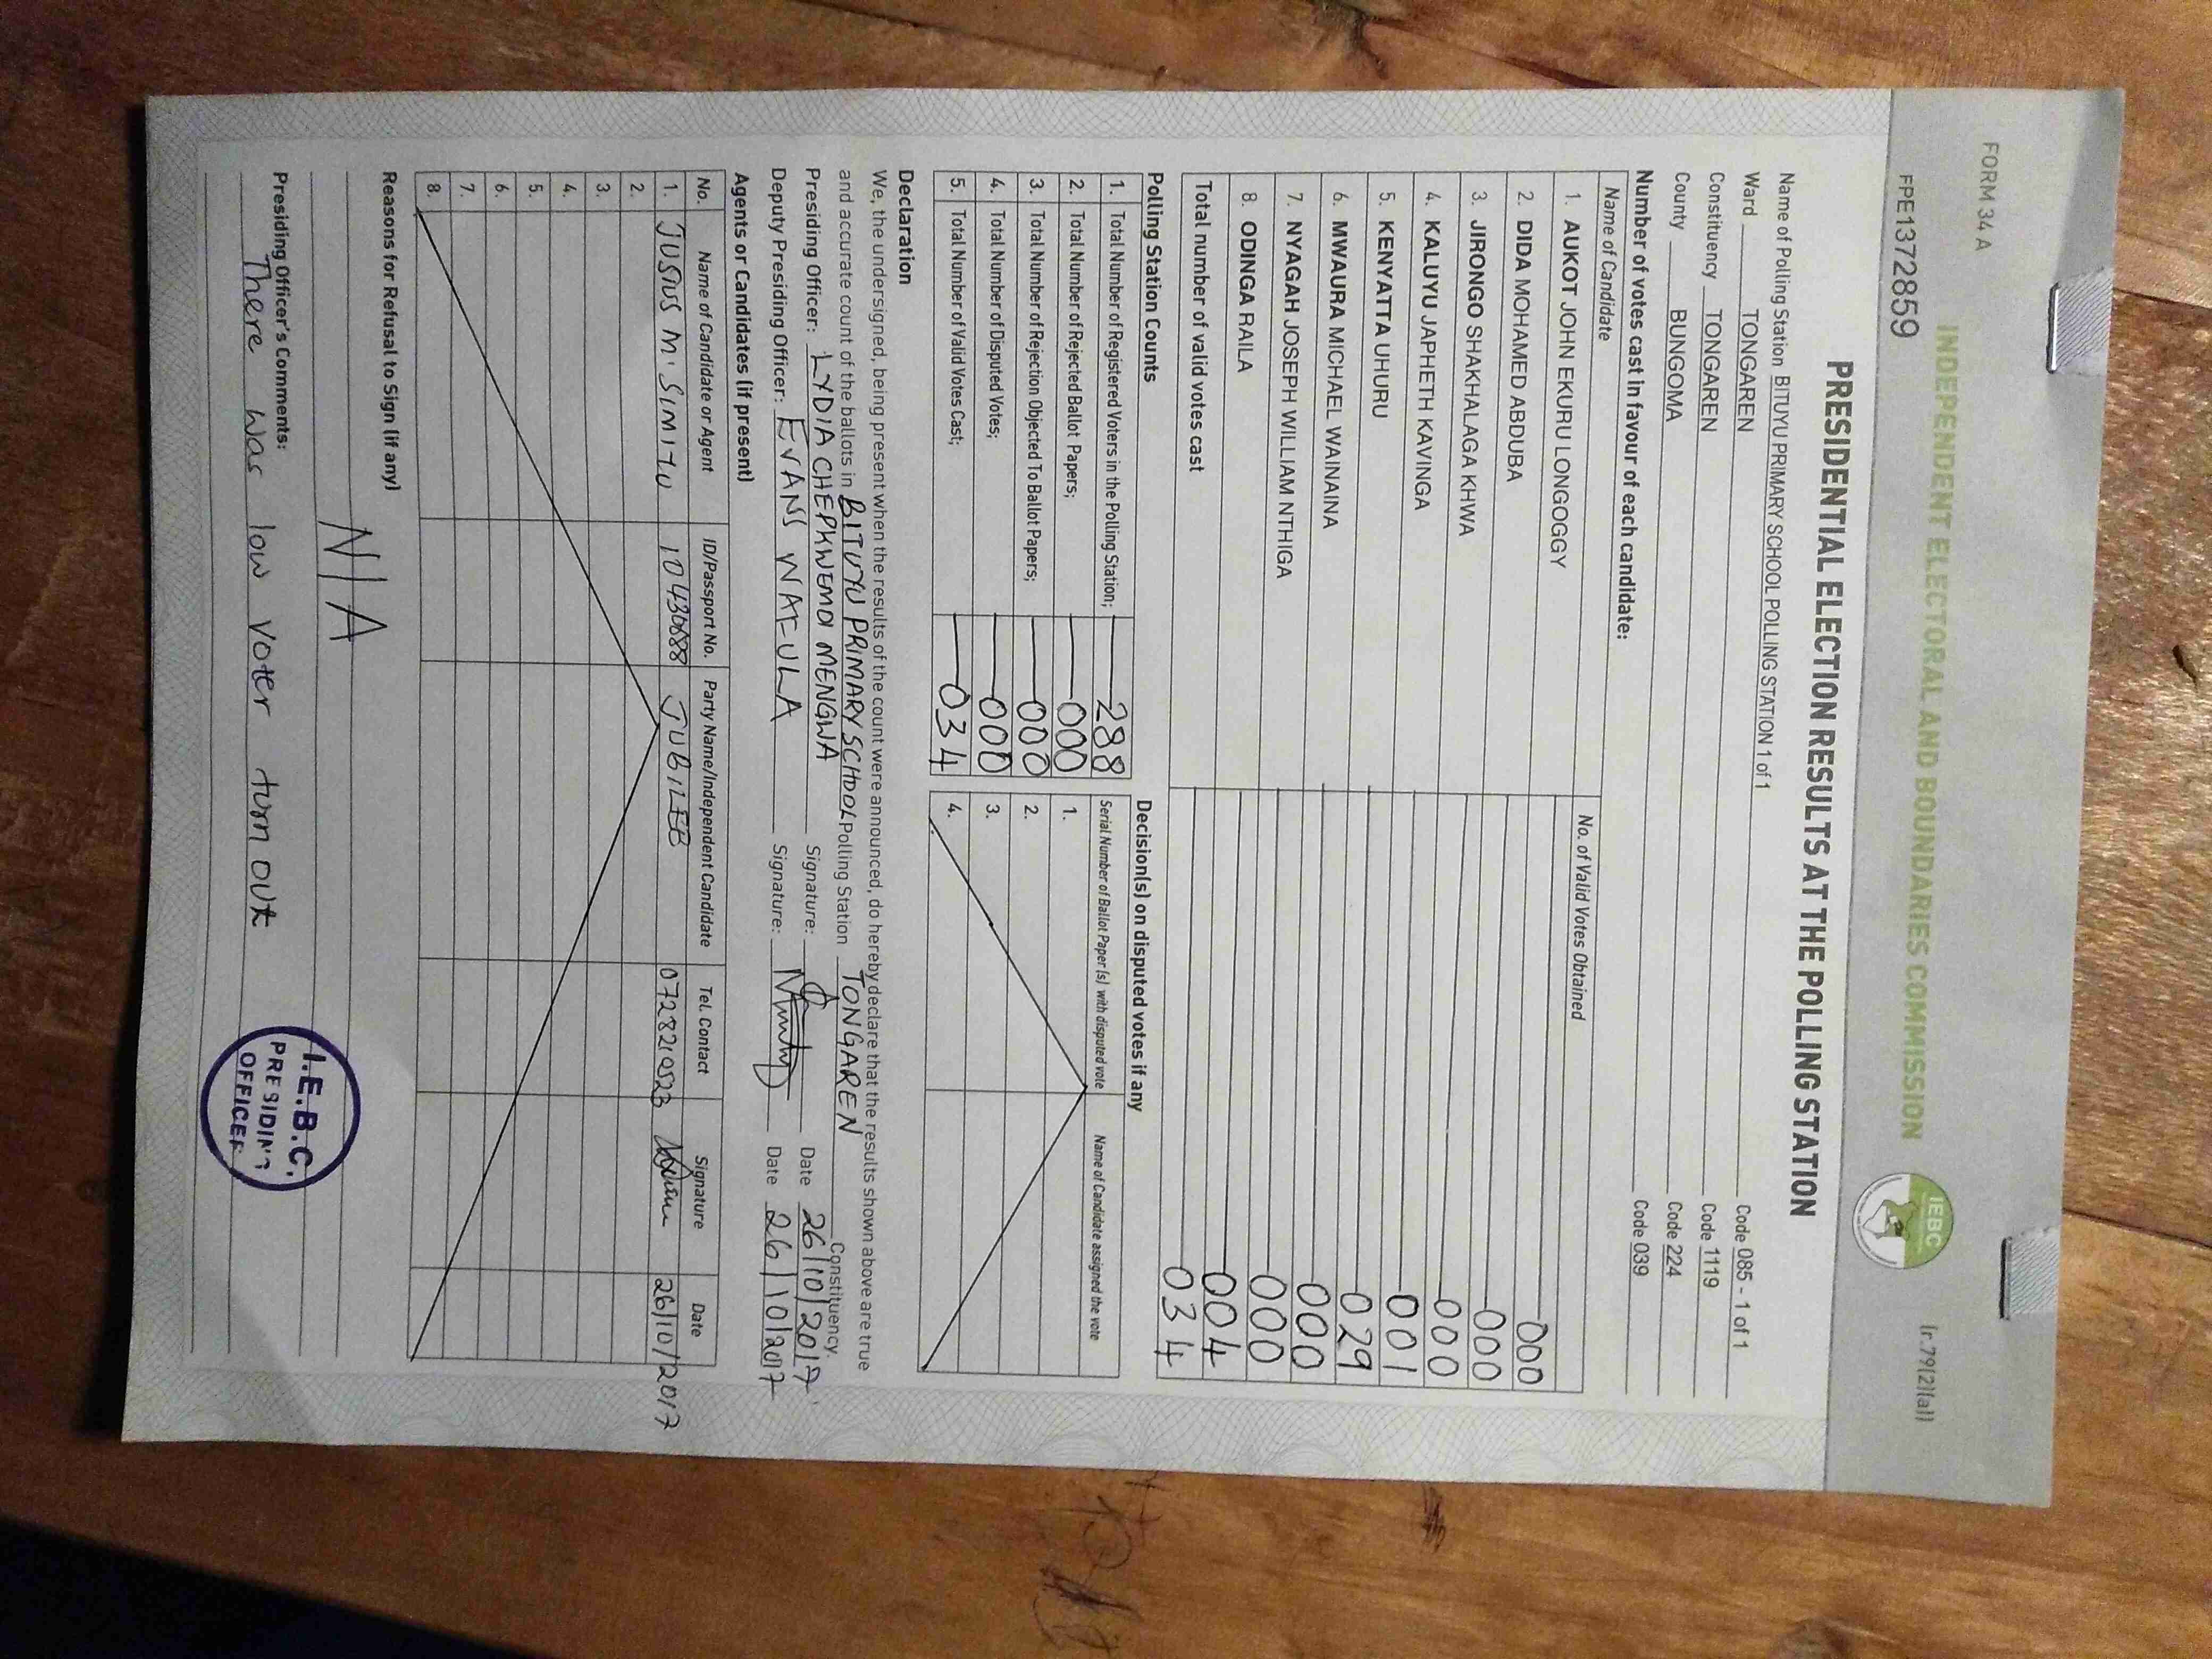 FORM 34 A
INDEPENDENT ELECTORAL AND BOUNDARIES COMMISSION
IEBC
(r.79(2)(a))
FPE1372859
PRESIDENTIAL ELECTION RESULTS AT THE POLLING STATION
Name of Polling Station BITUYU PRIMARY SCHOOL POLLING STATION 1 of 1 Code 085 - 1 of 1
Ward TONGAREN Code 1119
Constituency TONGAREN Code 224
County BUNGOMA Code 039
Number of votes cast in favour of each candidate:
Name of Candidate No. of Valid Votes Obtained
1. AUKOT JOHN EKURU LONGOGGY 000
2. DIDA MOHAMED ABDUBA 000
3. JIRONGO SHAKHALAGA KHWA 000
4. KALUYU JAPHETH KAVINGA 001
5. KENYATTA UHURU 029
6. MWAURA MICHAEL WAINAINA 000
7. NYAGAH JOSEPH WILLIAM NTHIGA 000
8. ODINGA RAILA 004
Total number of valid votes cast 034
Polling Station Counts
1. Total Number of Registered Voters in the Polling Station; 288
2. Total Number of Rejected Ballot Papers; 000
3. Total Number of Rejection Objected To Ballot Papers; 000
4. Total Number of Disputed Votes; 000
5. Total Number of Valid Votes Cast; 034
Decision(s) on disputed votes if any
Serial Number of Ballot Paper (s) with disputed vote Name of Candidate assigned the vote
1.
2.
3.
4.
Declaration
We, the undersigned, being present when the results of the count were announced, do hereby declare that the results shown above are true
and accurate count of the ballots in BITUYU PRIMARY SCHOOL Polling Station TONGAREN Constituency.
Presiding Officer: LYDIA CHEPKWEMOI MENGWA Signature: Date 26/10/2017
Deputy Presiding Officer: EVANS WAFULA Signature: Date 26/10/2017
Agents or Candidates (if present)
No. Name of Candidate or Agent ID/Passport No. Party Name/Independent Candidate Tel. Contact Signature Date
1. JUSTUS M. SIMITU JUBILEE 26/10/2017
2.
3.
4.
5.
6.
7.
8.
Reasons for Refusal to Sign (if any)
N/A
Presiding Officer's Comments:
There was low voter turn out
I.E.B.C.
PRESIDING
OFFICER